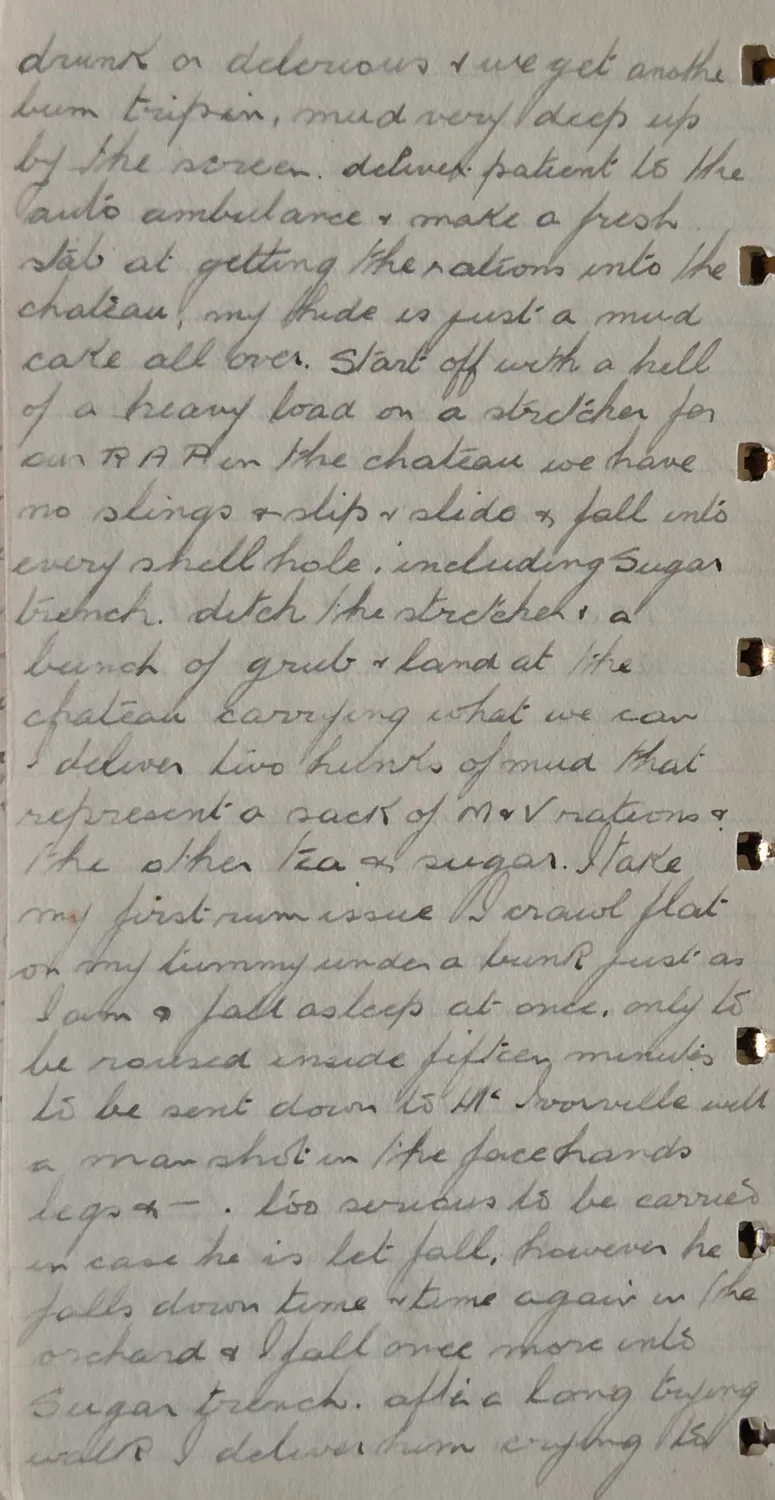 drunk or delerious & we get anothe
bum trip in, mud very deep up
by the screen. deliver patient to the
auto ambulance & make a fresh
stab at getting the rations into the
chateau, my hide is just a mud
cake all over. Start off with a hell
of a heavy load on a stretcher for
our R A P in the chateau we have
no slings & slip & slide & fall into
every shell hole, including Sugar
trench. ditch the stretcher & a
bunch of grub & land at the
chateau carrying what we can
I deliver two hunks of mud that
represent a sack of M & V rations &
the other tea & sugar. I take
my first rum issue I crawl flat
on my tummy under a bunk just as
I am & fall asleep at once, only to
be roused inside fifteen minutes
to be sent down to Mc Ivorville with
a man shot in the face hands
legs & — . too serious to be carried
in case he is let fall, however he
falls down time & time again in the
orchard & I fall once more into
Sugar trench. after a long trying
walk I deliver him crying to